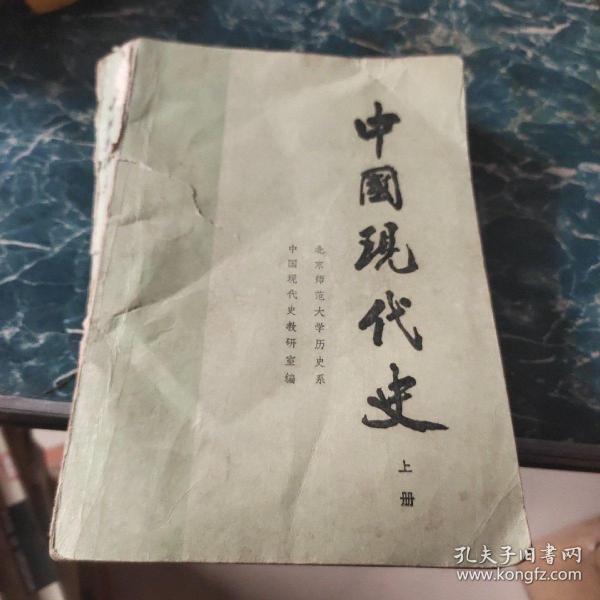 中國現代史
上册
北京师范大学历史系
中国现代史教研室编
孔夫子旧书网
www.kongfz.com